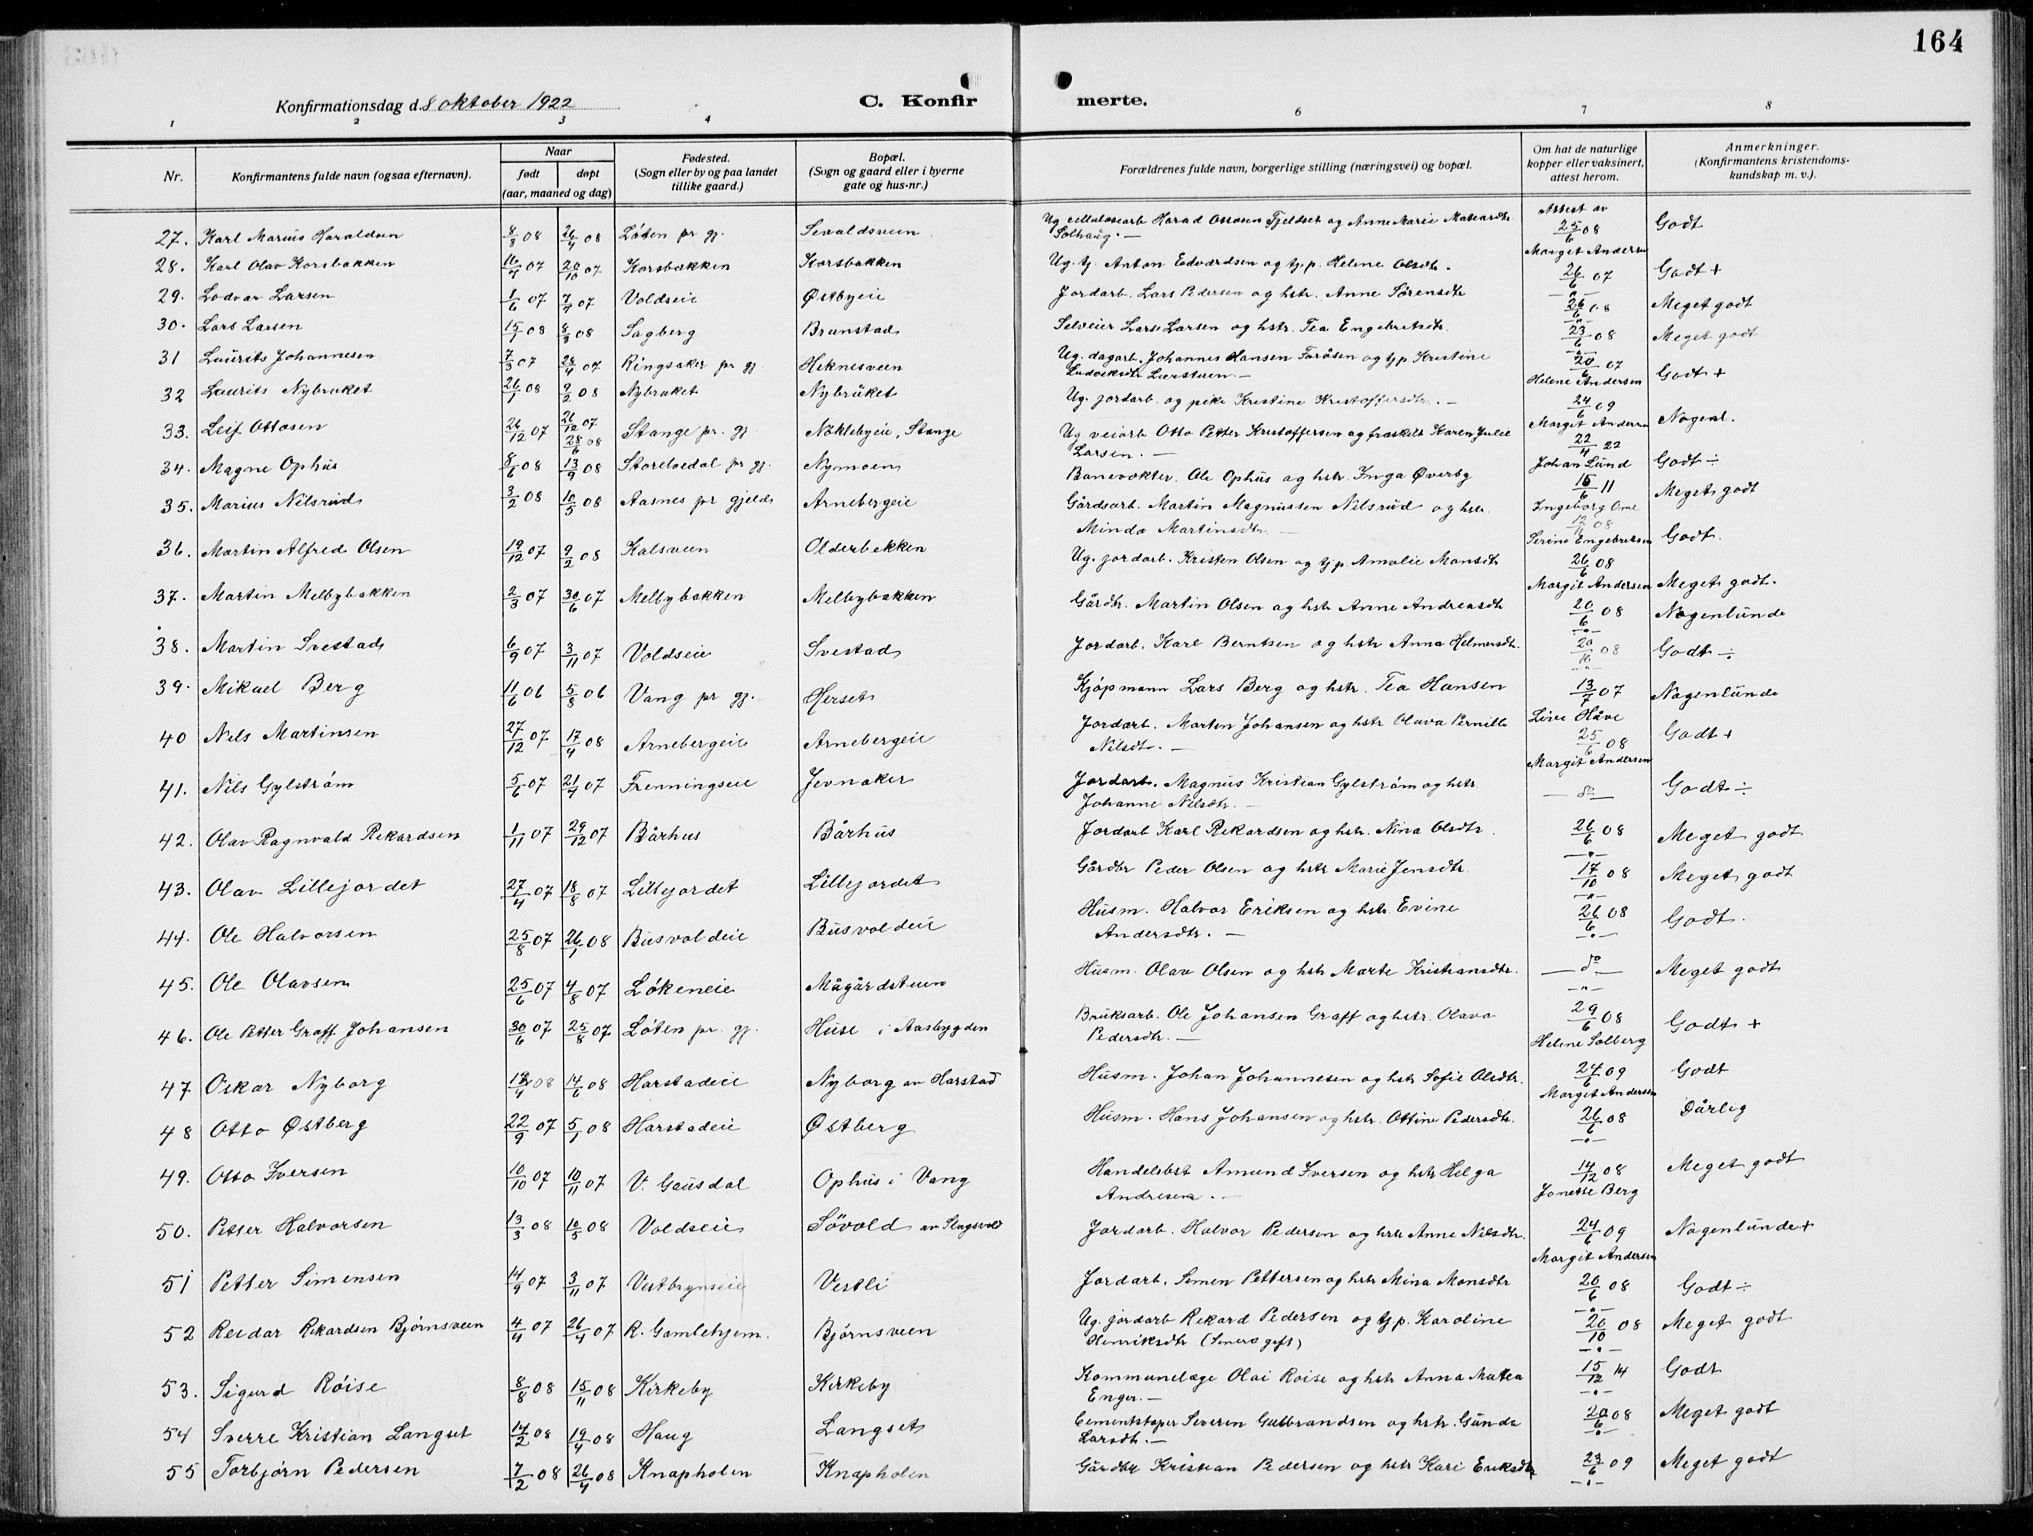 164
Konfirmationsdag d. 8 oktober 1922 C. Konfir merte.
1 2 3 4 6 7 8
Nr. Konfirmantens fulde navn (ogsaa efternavn). Naar født døpt (aar, maaned og dag) Fødested. (Sogn eller by og paa landet tillike gaard.) Bopæl. (Sogn og gaard eller i byerne gate og hus-nr.) Forældrenes fulde navn, borgerlige stilling (næringsvei) og bopæl. Om hat de naturlige kopper eller vaksinert, attest herom. Anmerkninger. (Konfirmantens kristendoms-kundskap m. v.).
27. Karl Marius Haraldsen 8/3 08 26/4 08 Løten pr gj. Sevaldsveen Ug. cellulosearb Harad Ottosen Fjeldset og Anne Marie Solhaug. — Attest av 25/6 08 Marget Andersen Godt
28. Karl Olav Korsbakken 16/4 07 20/10 07 Korsbakken Korsbakken Ug. tj. Anton Edvardsen og tj.p. Helene Olsdtr. 26/6 07 Godt +
29. Lodvar Larsen 1/6 07 7/7 07 Voldseie Østbyeie Jordarb. Lars Pedersen og hstr. Anne Sørensdtr 26/6 08 Meget godt
30. Lars Larsen 15/1 08 8/3 08 Sagberg Brunstad Selveier Lars Larsen og hstr. Tea Engebretsdtr. 23/6 08 Meget godt
31 Laurits Johannesen 7/3 07 28/4 07 Ringsaker pr gj Heknesveen Ug. dagarb. Johannes Hansen Foråsen og tjp Kristine Ludviksdtr Lierstuen — 20/6 07 Helene Andersen Godt +
32 Laurits Nybruket 26/1 08 9/2 08 Nybruket Nybrüket Ug. jordarb. og pike Kristine Kristoffersdtr. — 24/6 09 Marget Andersen
33. Leif Ottosen 26/12 07 26/12 07 28/6 08 Stange pr. gj. Nøklebyeie, Stange Ug. veiarb Otto Petter Kristoffersen og fraskilt Karen Julie Larsen. — 22/4 22 Johan Lund Nogenl.
34. Magne Ophus 8/6 08 13/9 08 Storelvedal pr gj. Nymoen Banevokter. Ole Ophüs og hstr. Inga Øverby 15/6 11 Godt ÷
35. Marius Nilsrud 3/2 08 10/5 08 Aasnes pr gjelds Arnebergeie Gårdsarb. Martin Magnussen Nilsrud og hstr. Minda Martinsdtr. — Ingeborg 12/11 08 Meget godt
36. Martin Alfred Olsen 19/12 07 9/2 08 Kalsveen Olderbekken Ug. jordarb. Kristen Olsen og tj p. Amalie Monsdtr Serine Engebretsen 26/6 08 Godt.
37. Martin Melbybakken 2/3 07 30/6 07 Melbybakken Melbybakken Gårdbr. Martin Olsen og hstr Anne Andreasdtr Margit Andersen 20/6 08 Meget godt.
38. Martin Svestad 6/9 07 3/11 07 Voldseie Svestad Jordarb. Karl Berntsen og hstr Anna Helmersdtr. 20/10 08 Nogenlunde Godt ÷
39. Mikael Berg 11/6 06 5/8 06 Vang pr gj. Herset Kjøpmann Lars Berg og hstr. Tea Hansen 13/7 07 Nogenlunde
40 Nels Martinsen 27/12 07 17/4 08 Arnebergeie Arnebergeie Jordarb. Morten Johansen og hstr Olava Pernille Nilsdtr. — Live Håve 25/6 08 Margit Andersen Godt +
41. Nils Gylstrøm 5/6 07 21/7 07 Frenningseie Jevnaker Jordarb. Magnus Kristian Gylstrøm og hstr. Johanne Nilsdtr. — — do — Godt ÷
42. Olav Ragnvald Rekardsen 1/11 07 29/12 07 Bårhus Bårhüs Jordarb Karl Rekardsen og hstr. Nina Olsdtr. 26/6 08 Meget godt
43. Olav Lillejordet 27/4 07 18/8 07 Lillejordet Lillejordet Gårdbr Peder Olsen og hstr Marie Jensdtr. 17/10 08 Meget godt
44. Ole Halvorsen 25/8 07 26/1 08 Busvoldeie Busvoldeie Husm. Halvor Eriksen og hstr. Evine Andersdtr. — 26/6 08 Godt.
45. Ole Olavsen 25/6 07 4/8 07 Løkeneie Mågårdstuen Husm. Olav Olsen og hstr Marte Kristiansdtr. — do — Meget godt
46. Ole Petter Graff Johansen 30/6 07 25/8 07 Løten pr. gj. Huse i Aasbygden Bruksarb. Ole Johansen Graff og hstr. Olava Pedersdtr. — 29/6 08 Helene Solberg Godt +
47 Oskar Nyborg 12/4 08 14/6 08 Harstadeie Nyborg av Harstad Husm. Johan Johannesen og hstr Sofie Olsdtr. 24/6 09 Marget Andersen Godt
48 Otto Østberg 22/9 07 5/1 08 Harstadeie Østberg Husm. Hans Johansen og hstr. Ottine Pedersdtr. 26/6 08 Dårlig
49. Otto Iversen 10/10 07 10/11 07 V. Gausdal Ophus i Vang Handelsbst Amund Iversen og hstr Helga Andresen. — 14/12 08 Jonette Berg Meget godt
50. Petter Halvorsen 13/3 08 10/5 08 Voldseie Søvold av Slagsvold Jordarb. Halvor Pedersen og hstr Anne Nilsdtr. 24/6 09 Margit Andersen Nogenlunde +
51 Petter Simensen 14/9 07 3/11 07 Vestbynseie Vestli Jordarb. Simen Pettersen og hstr Mina Monsdtr 20/6 08 Godt ÷
52 Reidar Rikardsen Bjørnsveen 4/4 07 26/4 07 R. Gamlehjem. Bjørnsveen Ug. jordarb Rekard Pedersen og tj p. Karoline Henriksdtr (senere gift) 20/10 08 Meget godt
53. Sigurd Røise 8/8 08 15/11 08 Kirkeby Kirkeby Kommunelæge Olai Røise og hstr Anna Mattea Enger. — 15/12 14 Godt
54 Sverre Kristian Langset 14/2 08 19/4 08 Haug Langset Cementstøper Severin Gulbrandsen og hstr. Gunda Larsdtr. — 20/6 08 Meget godt
55 Torbjørn Pedersen 7/2 08 26/4 08 Knapholen Knapholen Gårdbr Kristian Pedersen og hstr Kari Eriksdtr 23/6 09 Meget godt